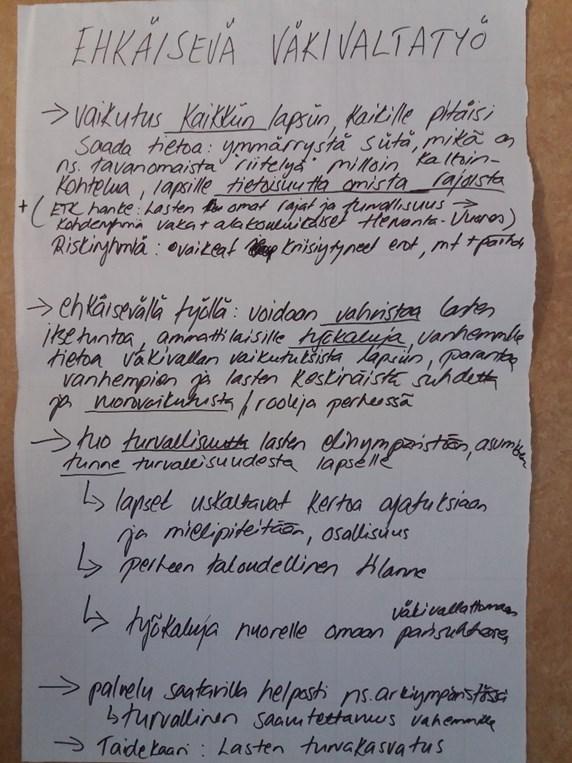 EHKÄISEVÄ VÄKIVALTATYÖ
→ vaikutus kaikkiin lapsiin, kaikille pitäisi
saada tietoa: ymmärrystä siitä, mikä on
ns. tavanomaista riitelyä milloin kaltoin-
kohtelua, lapsille tietoisuutta omista rajoista
+ (ETK hanke: Lasten omat rajat ja turvallisuus →
kohderyhmä vaka + alakouluikäiset Hervanta-Vuores)
Riskiryhmiä: vaikeat kriisiytyneet erot, mt + päihde
→ ehkäisevällä työllä: voidaan vahvistaa lasten
itsetuntoa, ammattilaisille työkaluja, vanhemmille
tietoa väkivallan vaikutuksista lapsiin, parantaa
vanhempien ja lasten keskinäistä suhdetta
ja vuorovaikutusta / rooleja perheessä
→ tuo turvallisuutta lasten elinympäristöön, asumiseen
tunne turvallisuudesta lapselle
↳ lapset uskaltavat kertoa ajatuksiaan
ja mielipiteitään, osallisuus
↳ perheen taloudellinen tilanne
↳ työkaluja nuorelle omaan väkivallattomaan parisuhteeseen
→ palvelu saatavilla helposti ns. arkiympäristössä
↳ turvallinen saavutettavuus vanhemmille
→ Taidekaari: Lasten turvakasvatus